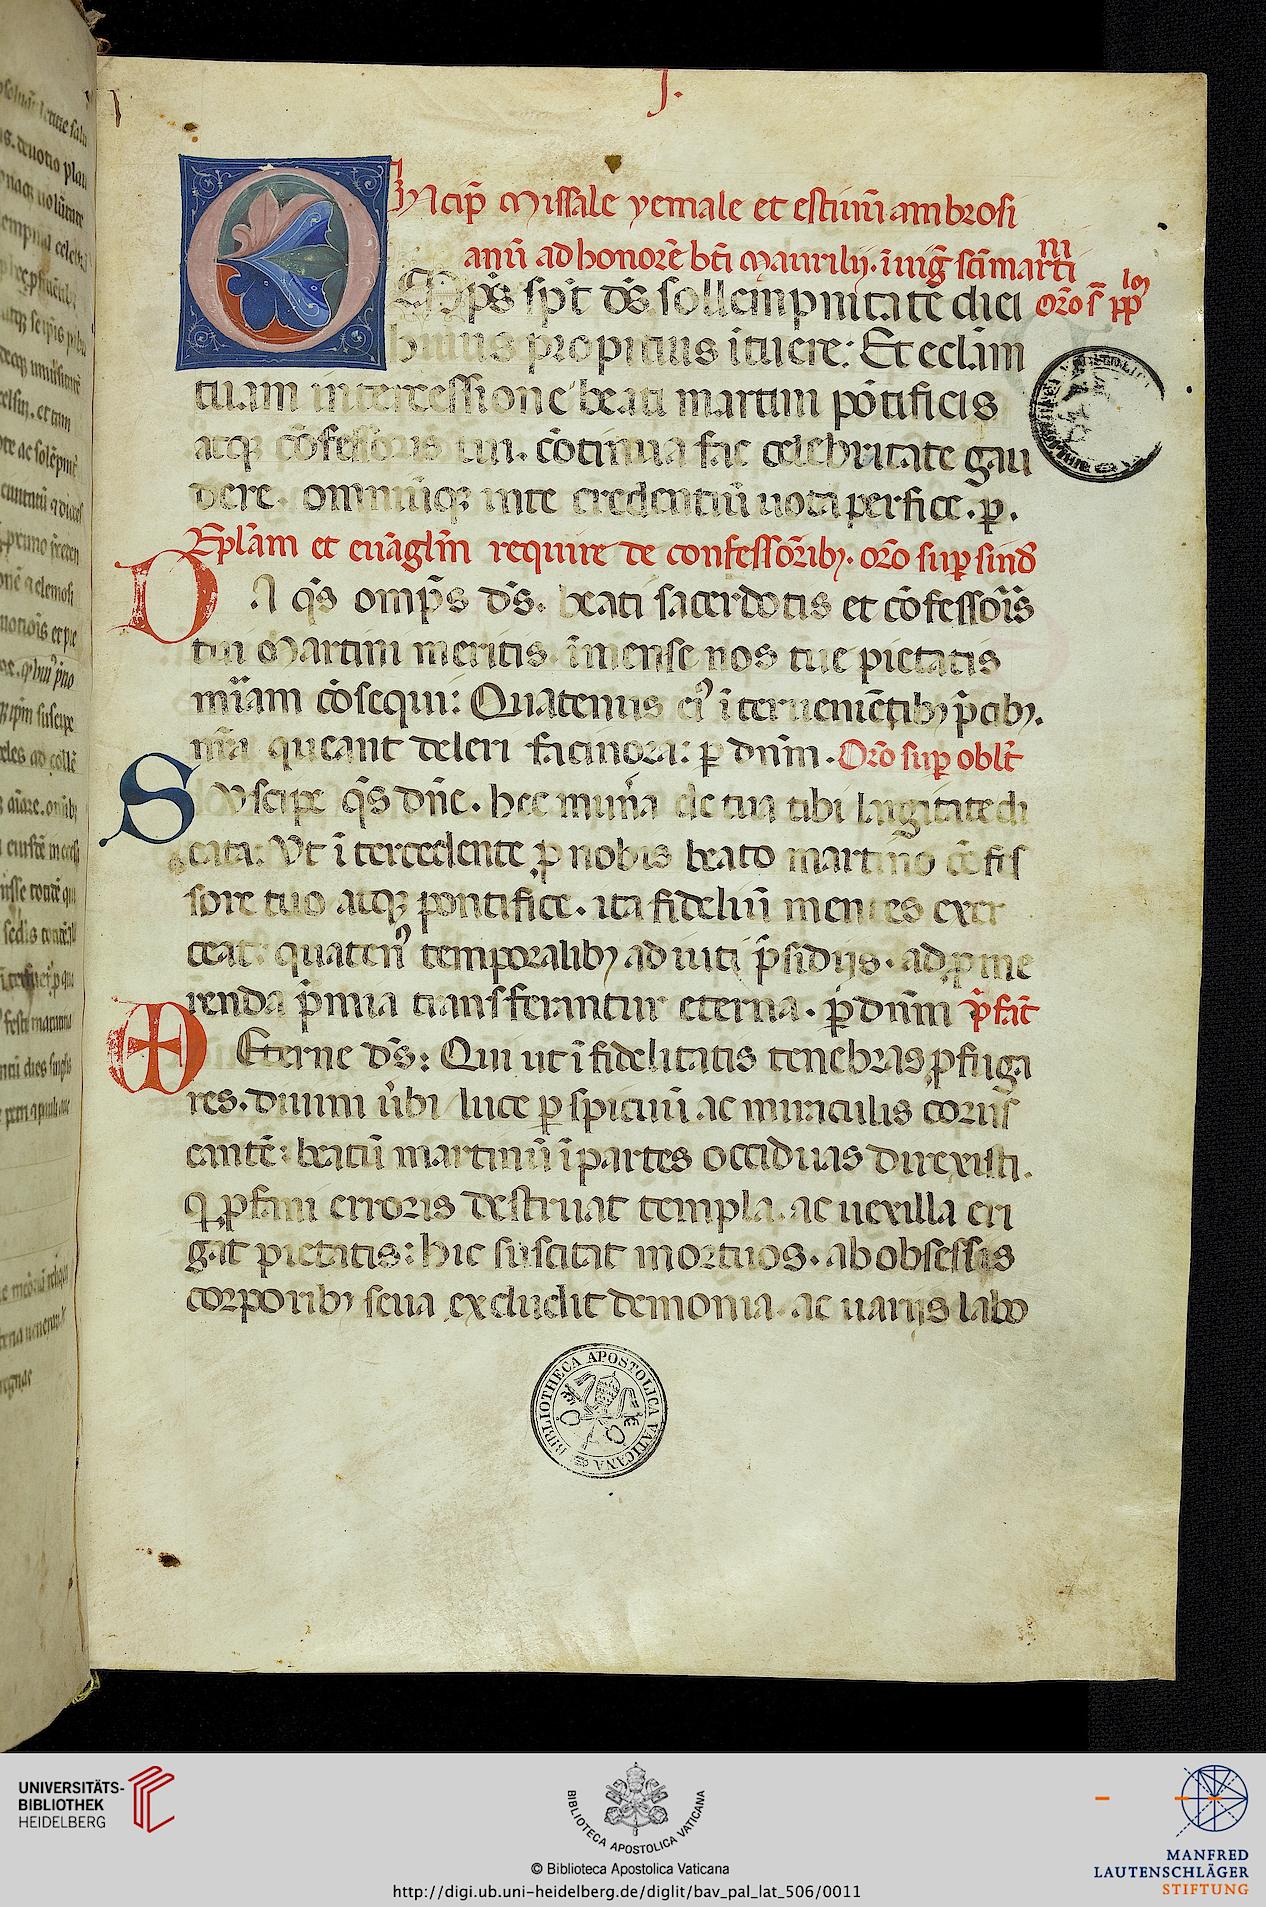 J.
Incip̄ missale yemale et estiuū ambrosi
anū ad honorē btī maurilij. ī uiḡ sc̄i marti
ni
Omps̄ sp̄t ds̄ sollempnitate diei
or̄o s̄ pp̄
lm̄
huius propitius ituere: Et eccl̄am
tuam intercessione beati martini pōtificis
atq; cōfessoris tui. cōtinua fac celebritate gau
dere. omniūq; in te credentiū uota perfice. p̱.
Ep̄lam et euāgliū require de confessōrib;. or̄o sup̱ sind̄
DA qs̄ omps̄ ds̄. beati sacerdotis et cōfessoīs
tui Martini meritis. īmense nos tue pietatis
mīam cōsequi: Quatenus ei' īterueniētib; p̄cib;.
nr̄a queant deleri facinora: p̱ dnm̄. Or̄o sup̱ oblt̄
Suscipe qs̄ dn̄e. hec mun̄a de tua tibi largitate di
cata: Vt ītercedente p̱ nobis beato martino cōfes
sore tuo atq; pontifice. ita fideliū mentes exer
ceat: quaten' temporalib; adiuti p̄sidijs. ad p̱me
renda p̄mia transferantur eterna. p̱ dnm̄ p̄fat̄
Eterne ds̄: Qui ut īfidelitatis tenebras p̱fuga
res. diuini ūbi luce p̱spicuū ac miraculis corus
cantē: beatū martinū ī partes occiduas direxisti.
q̱ p̱fani erroris destruat templa. ac uexilla eri
gat pietatis: hic suscitat mortuos. ab obsessis
corporib; seua excludit demonia. ac uarijs labo
BIBLIOTHECA APOSTOLICA VATICANA
UNIVERSITÄTS-
BIBLIOTHEK
HEIDELBERG
BIBLIOTECA APOSTOLICA VATICANA
© Biblioteca Apostolica Vaticana
http://digi.ub.uni-heidelberg.de/diglit/bav_pal_lat_506/0011
MANFRED
LAUTENSCHLÄGER
STIFTUNG